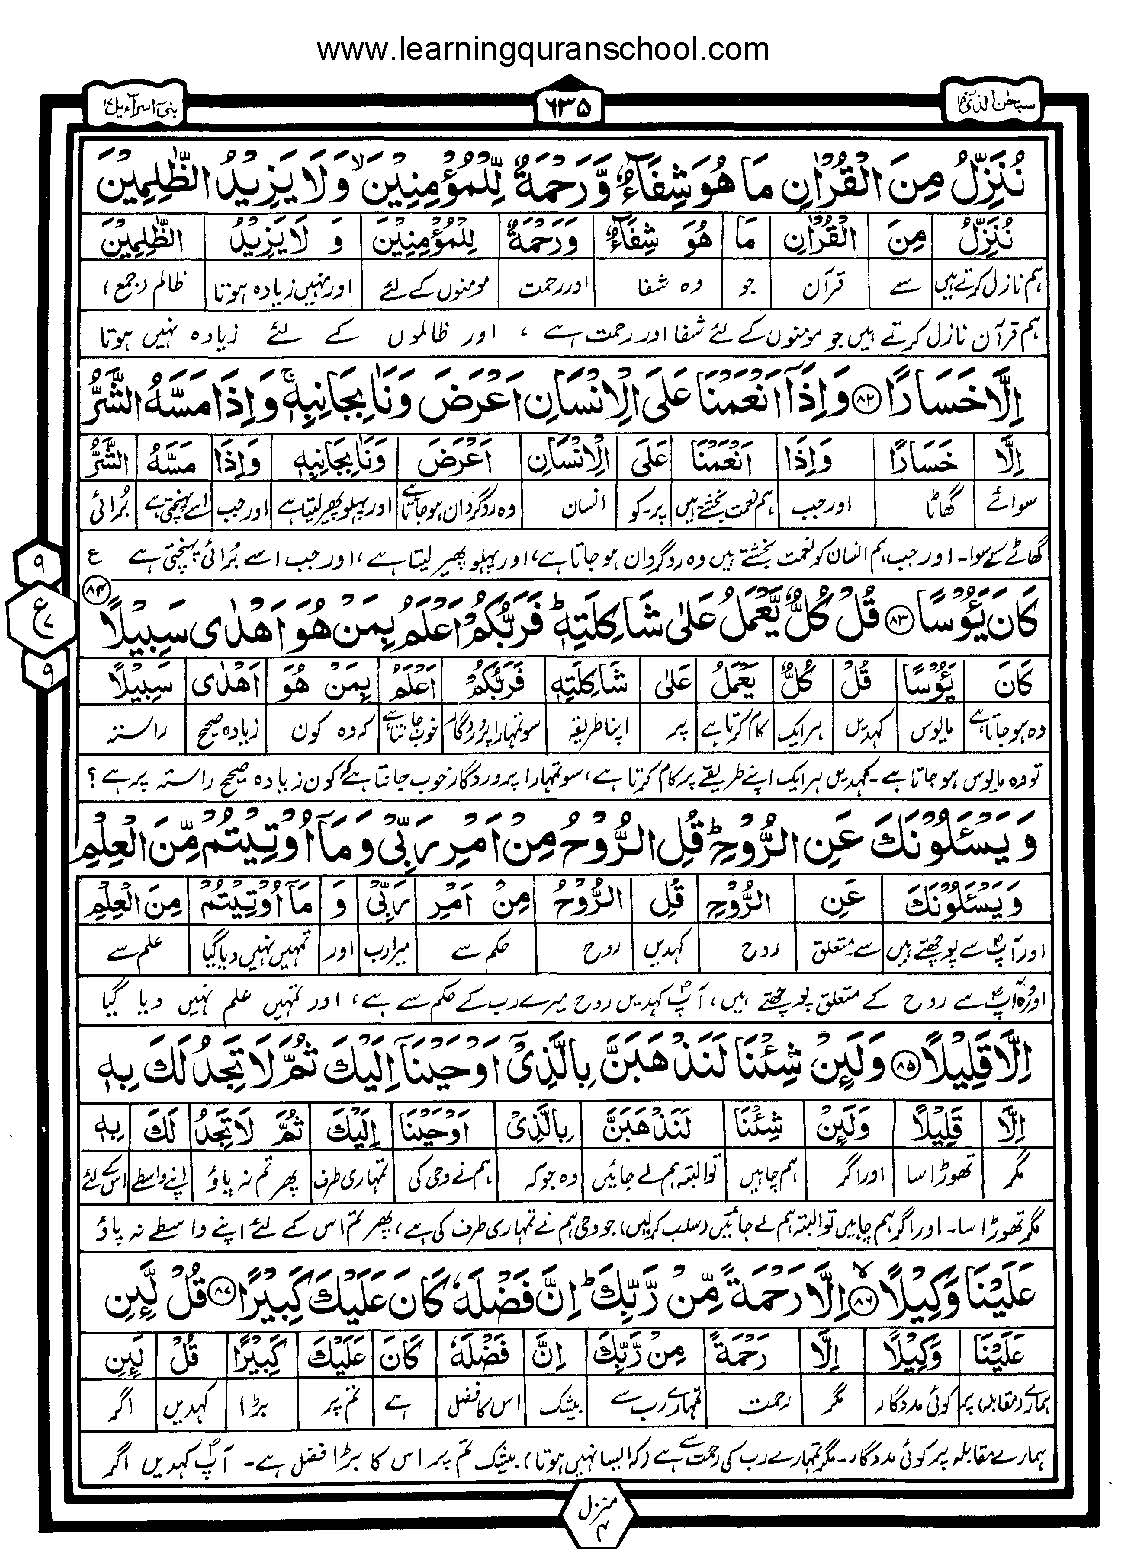 www.learningquranschool.com
سبحٰن الذی ۱۵
۶۳۵
بنی اسرآءیل ۱۷
نُنَزِّلُ مِنَ الْقُرْاٰنِ مَا هُوَ شِفَآءٌ وَّرَحْمَةٌ لِّلْمُؤْمِنِيْنَ ۙ وَلَا يَزِيْدُ الظّٰلِمِيْنَ
نُنَزِّلُ مِنَ الْقُرْاٰنِ مَا هُوَ شِفَآءٌ وَرَحْمَةٌ لِّلْمُؤْمِنِيْنَ وَ لَا يَزِيْدُ الظّٰلِمِيْنَ
ہم نازل کرتے ہیں سے قرآن جو وہ شفا اور رحمت مومنوں کے لئے اور نہیں زیادہ ہوتا ظالم (جمع)
ہم قرآن نازل کرتے ہیں جو مومنوں کے لئے شفا اور رحمت ہے ، اور ظالموں کے لئے زیادہ نہیں ہوتا
اِلَّا خَسَارًا ۸۲ وَاِذَآ اَنْعَمْنَا عَلَى الْاِنْسَانِ اَعْرَضَ وَنَاٰ بِجَانِبِهٖ ۚ وَاِذَا مَسَّهُ الشَّرُّ
اِلَّا خَسَارًا وَاِذَا اَنْعَمْنَا عَلَى الْاِنْسَانِ اَعْرَضَ وَنَاٰ بِجَانِبِهٖ وَاِذَا مَسَّهُ الشَّرُّ
سوائے گھاٹا اور جب ہم نعمت بخشتے ہیں پر-کو انسان وہ روگردان ہوجاتا ہے اور پہلو پھیر لیتا ہے اور جب اسے پہنچتی ہے بُرائی
گھاٹے کے سوا۔ اور جب ہم انسان کو نعمت بخشتے ہیں وہ روگردان ہوجاتا ہے، اور پہلو پھیر لیتا ہے، اور جب اسے بُرائی پہنچتی ہے ع
۹
ع ۷
۹
كَانَ يَئُوْسًا ۸۳ قُلْ كُلٌّ يَّعْمَلُ عَلٰى شَاكِلَتِهٖ ؕ فَرَبُّكُمْ اَعْلَمُ بِمَنْ هُوَ اَهْدٰى سَبِيْلًا ۸۴
كَانَ يَئُوْسًا قُلْ كُلٌّ يَّعْمَلُ عَلٰى شَاكِلَتِهٖ فَرَبُّكُمْ اَعْلَمُ بِمَنْ هُوَ اَهْدٰى سَبِيْلًا
وہ ہوجاتا ہے مایوس کہدیں ہر ایک کام کرتا ہے پر اپنا طریقہ سو تمہارا پروردگار خوب جانتا ہے کہ وہ کون زیادہ صحیح راستہ
تو وہ مایوس ہوجاتا ہے۔ کہدیں ہر ایک اپنے طریقے پر کام کرتا ہے، سو تمہارا پروردگار خوب جانتا ہے کہ کون زیادہ صحیح راستہ پر ہے ؟
وَيَسْـَٔلُوْنَكَ عَنِ الرُّوْحِ ؕ قُلِ الرُّوْحُ مِنْ اَمْرِ رَبِّىْ وَمَآ اُوْتِيْتُمْ مِّنَ الْعِلْمِ
وَيَسْـَٔلُوْنَكَ عَنِ الرُّوْحِ قُلِ الرُّوْحُ مِنْ اَمْرِ رَبِّىْ وَ مَآ اُوْتِيْتُمْ مِنَ الْعِلْمِ
اور آپؐ سے پوچھتے ہیں سے متعلق روح کہدیں روح حکم سے میرا رب اور تمہیں نہیں دیا گیا علم سے
اور وہ آپؐ سے روح کے متعلق پوچھتے ہیں، آپؐ کہدیں روح میرے رب کے حکم سے ہے، اور تمہیں علم نہیں دیا گیا
اِلَّا قَلِيْلًا ۸۵ وَلَئِنْ شِئْنَا لَنَذْهَبَنَّ بِالَّذِىْٓ اَوْحَيْنَآ اِلَيْكَ ثُمَّ لَا تَجِدُ لَكَ بِهٖ
اِلَّا قَلِيْلًا وَلَئِنْ شِئْنَا لَنَذْهَبَنَّ بِالَّذِىْ اَوْحَيْنَا اِلَيْكَ ثُمَّ لَا تَجِدُ لَكَ بِهٖ
مگر تھوڑا سا اور اگر ہم چاہیں تو البتہ ہم لے جائیں وہ جو کہ ہم نے وحی کی تمہاری طرف پھر تم نہ پاؤ اپنے واسطے اس کے لئے
مگر تھوڑا سا۔ اور اگر ہم چاہیں تو البتہ ہم لے جائیں (سلب کرلیں) جو وحی ہم نے تمہاری طرف کی ہے، پھر تم اس کے لئے اپنے واسطے نہ پاؤ
عَلَيْنَا وَكِيْلًا ۸۶ ۙ اِلَّا رَحْمَةً مِّنْ رَّبِّكَ ؕ اِنَّ فَضْلَهٗ كَانَ عَلَيْكَ كَبِيْرًا ۸۷ قُلْ لَّئِنِ
عَلَيْنَا وَكِيْلًا اِلَّا رَحْمَةً مِنْ رَّبِّكَ اِنَّ فَضْلَهٗ كَانَ عَلَيْكَ كَبِيْرًا قُلْ لَئِنِ
ہمارے (مقابلہ) پر کوئی مددگار مگر رحمت تمہارے رب سے بیشک اس کا فضل ہے تم پر بڑا کہدیں اگر
ہمارے مقابلہ پر کوئی مددگار۔ مگر تمہارے رب کی رحمت سے ہے (کہ ایسا نہیں ہوتا) بیشک تم پر اس کا بڑا فضل ہے۔ آپؐ کہدیں اگر
منزل ۴